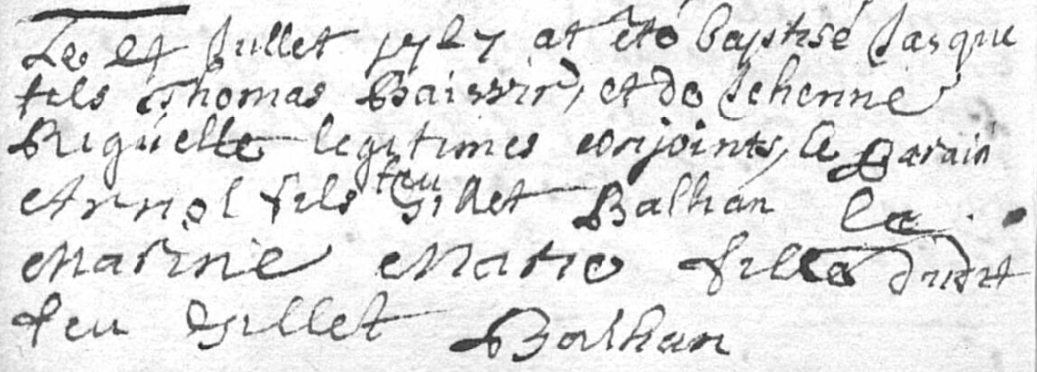 Le 27 Jullet 1727 at été baptisé Jasque
fils Thomas Baiwir, et de Jehenne
Riguelle legitimes conjoints, le Parain
Arnol fils feu Gillet Balhan la
Marine Marie fille dudit
feu Gillet Balhan